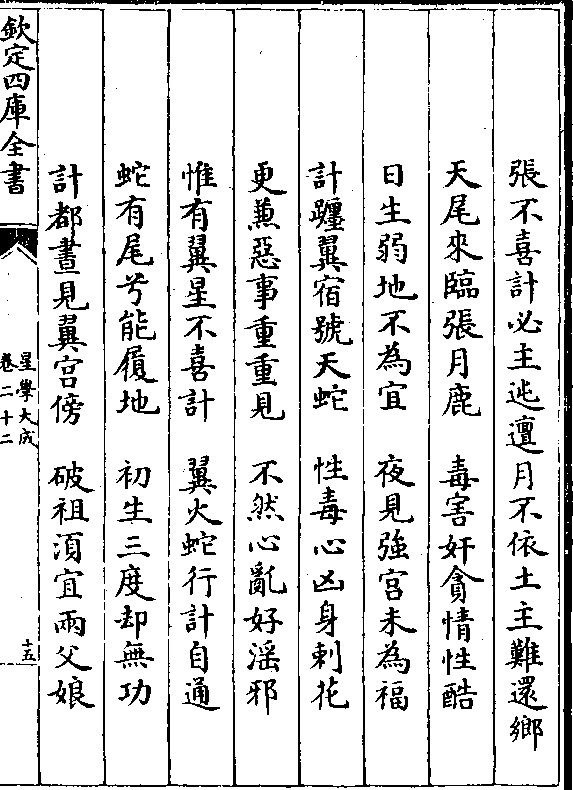 張不喜計必主迍邅月不依土主難還鄉
天尾來臨張月鹿　毒害奸貪情性酷
日生弱地不為宜　夜見強宮未為福
計躔翼宿號天蛇　性毒心凶身刺花
更兼惡事重重見　不然心亂好滛邪
惟有翼星不喜計　翼火蛇行計自通
蛇有尾兮能履地　初生三度却無功
計都晝見翼宫傍　破祖湏宜兩父娘
欽定四庫全書
星學大成
卷二十二
十五